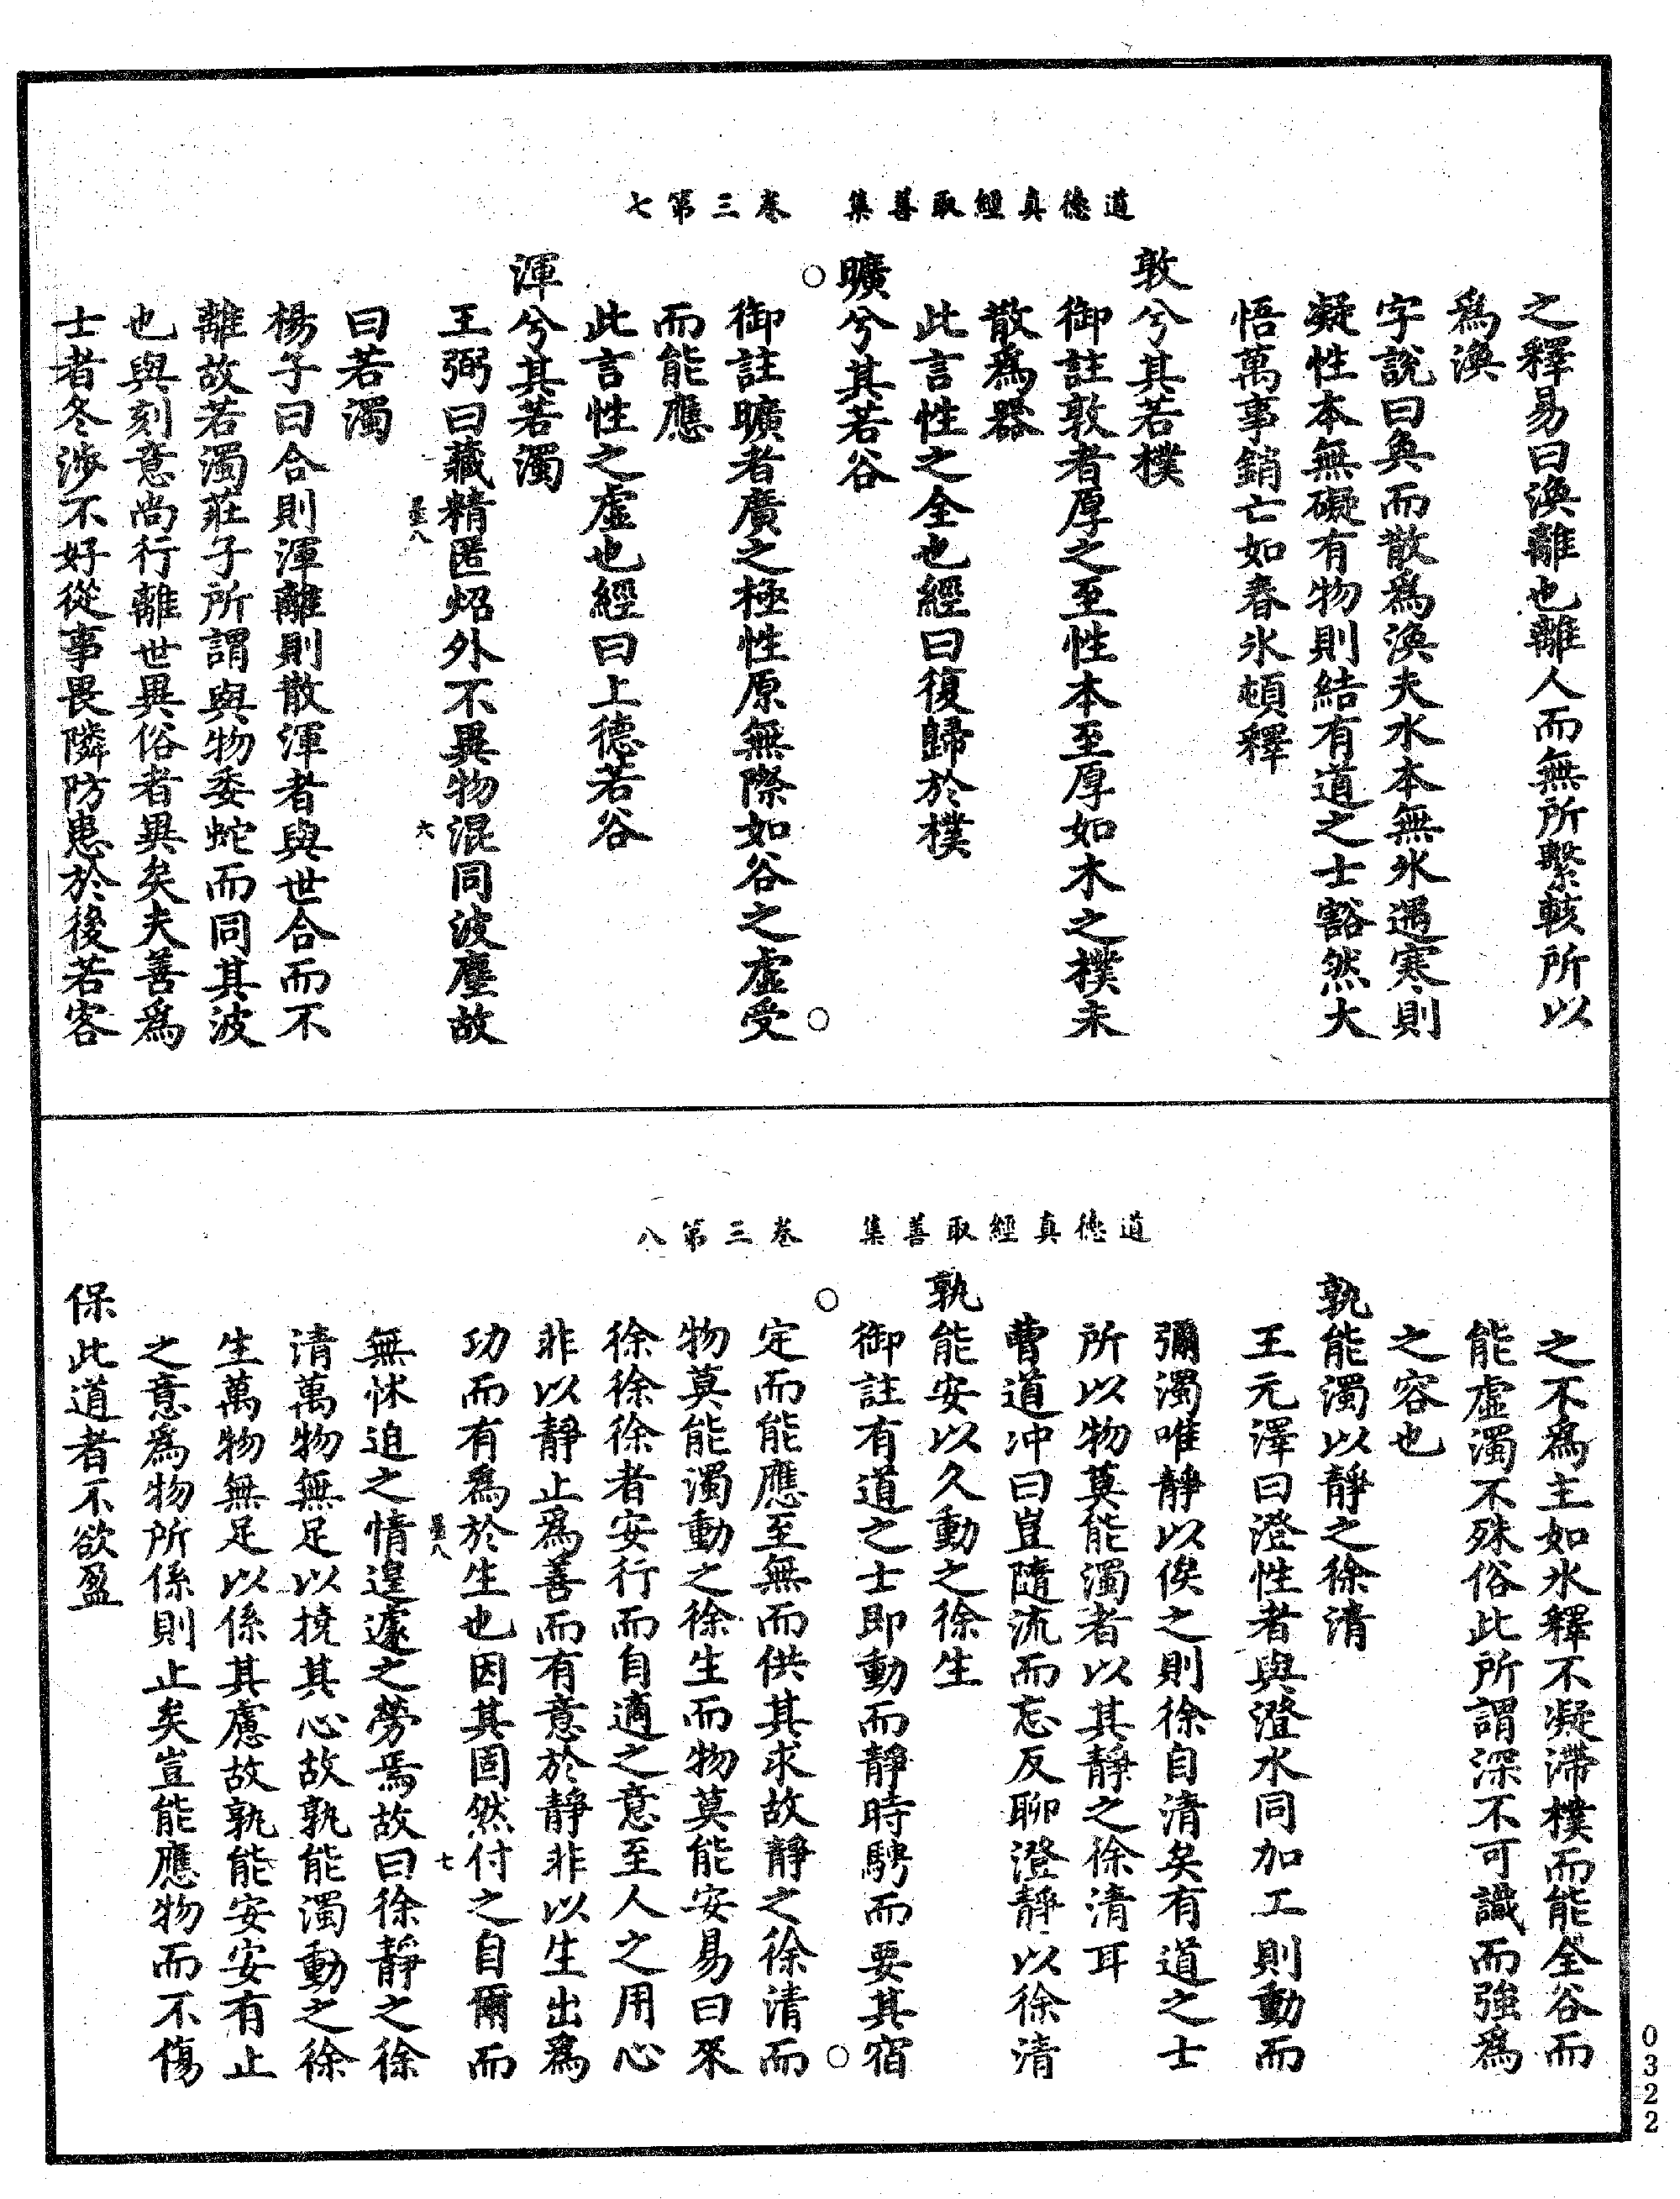 道德真經取善集　卷三第七
之釋易曰渙離也離人而無所繫輆所以
爲渙
字說曰奐而散爲渙夫水本無氷遇寒則
凝性本無礙有物則結有道之士豁然大
悟萬事銷亡如春氷頓釋
敦兮其若樸
御註敦者厚之至性本至厚如木之樸未
散爲器
此言性之全也經曰復歸於樸
曠兮其若谷
御註曠者廣之極性原無際如谷之虛受
而能應
此言性之虛也經曰上德若谷
渾兮其若濁
王弼曰藏精匿炤外不異物混同波塵故
六
曰若濁
楊子曰合則渾離則散渾者與世合而不
離故若濁莊子所謂與物委蛇而同其波
也與刻意尚行離世異俗者異矣夫善爲
士者冬涉不好從事畏隣防患於後若客
道德真經取善集　卷三第八
之不爲主如氷釋不凝滯樸而能全谷而
能虛濁不殊俗此所謂深不可識而強爲
之容也
孰能濁以靜之徐清
王元澤曰澄性者與澄水同加工則動而
彌濁唯靜以俟之則徐自清矣有道之士
所以物莫能濁者以其靜之徐清耳
曹道冲曰豈隨流而忘反聊澄靜以徐清
孰能安以久動之徐生
御註有道之士即動而靜時騁而要其宿
定而能應至無而供其求故靜之徐清而
物莫能濁動之徐生而物莫能安易曰來
徐徐徐者安行而自適之意至人之用心
非以靜止爲善而有意於靜非以生出爲
功而有爲於生也因其固然付之自爾而
七
無怵迫之情遑遽之勞焉故曰徐靜之徐
清萬物無足以撓其心故孰能濁動之徐
生萬物無足以係其慮故孰能安安有止
之意爲物所係則止矣豈能應物而不傷
保此道者不欲盈
0322